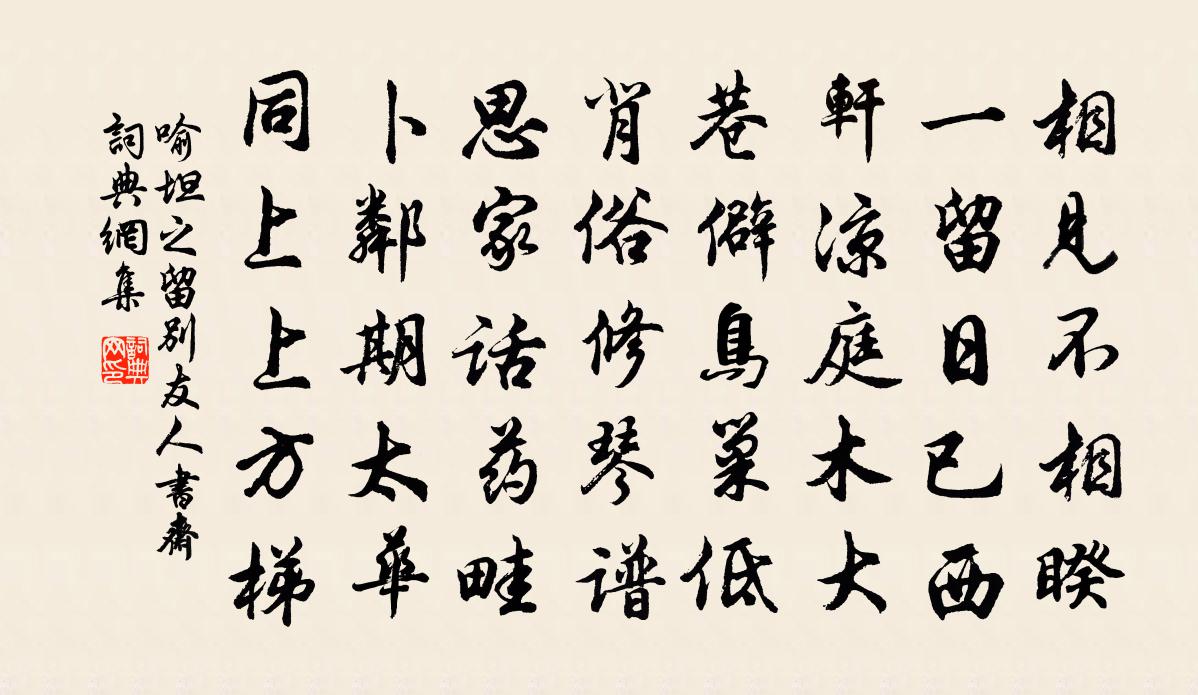 相見不相睽
一留日已西
軒涼庭木大
巷僻鳥巢低
背俗修琴谱
思家话药畦
卜鄰期太華
同上上方梯
喻坦之留別友人書齋
詞典網集
詞典網印